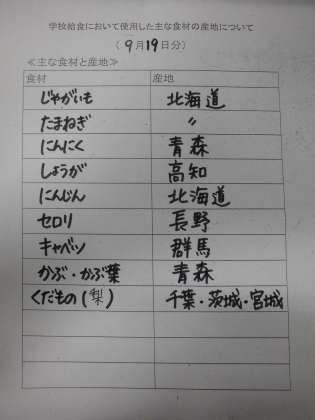 学校給食において使用した主な食材の産地について
(9月19日分)
≪主な食材と産地≫
食材 産地
じゃがいも 北海道
たまねぎ 〃
にんにく 青森
しょうが 高知
にんじん 北海道
セロリ 長野
キャベツ 群馬
かぶ・かぶ葉 青森
くだもの(梨) 千葉・茨城・宮城